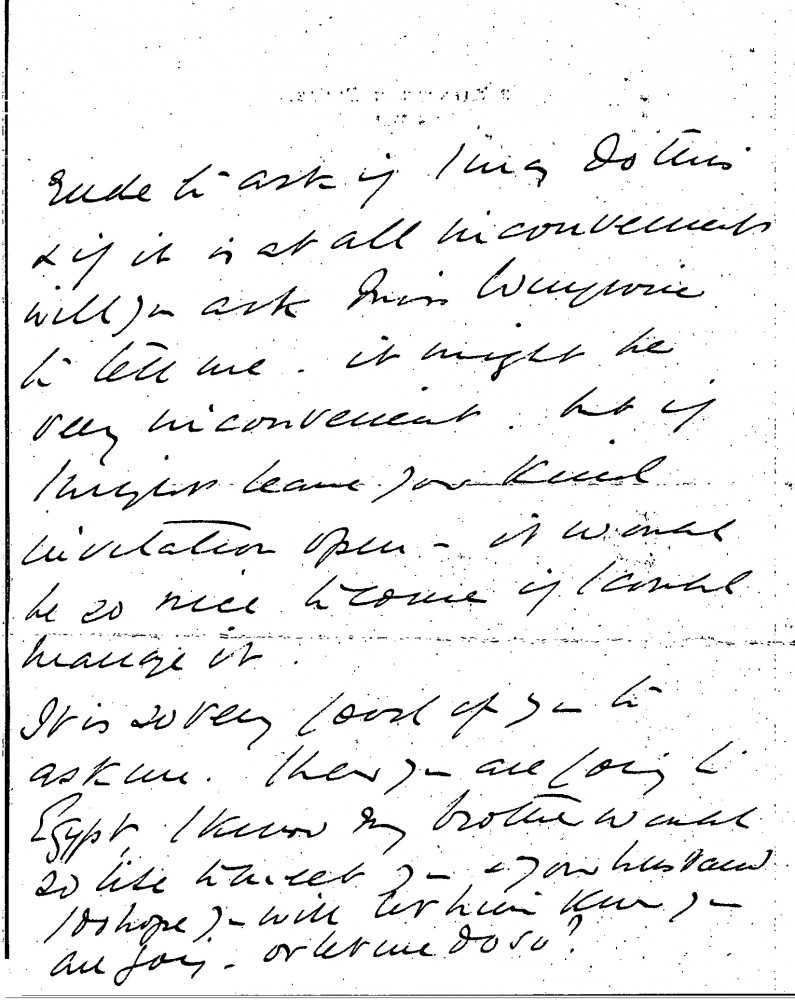 rude to ask if I may do this
& if it is at all inconvenient
will you ask Miss
to tell me. it might be
very inconvenient. but if
I might leave your kind
invitation open – it would
be so nice to come if I could
manage it.
It is so very good of you to
ask me. I hear you are going to
Egypt, I know my brother would
so like to meet you & your husband
I do hope you will let him know you
are going – or let me do so?